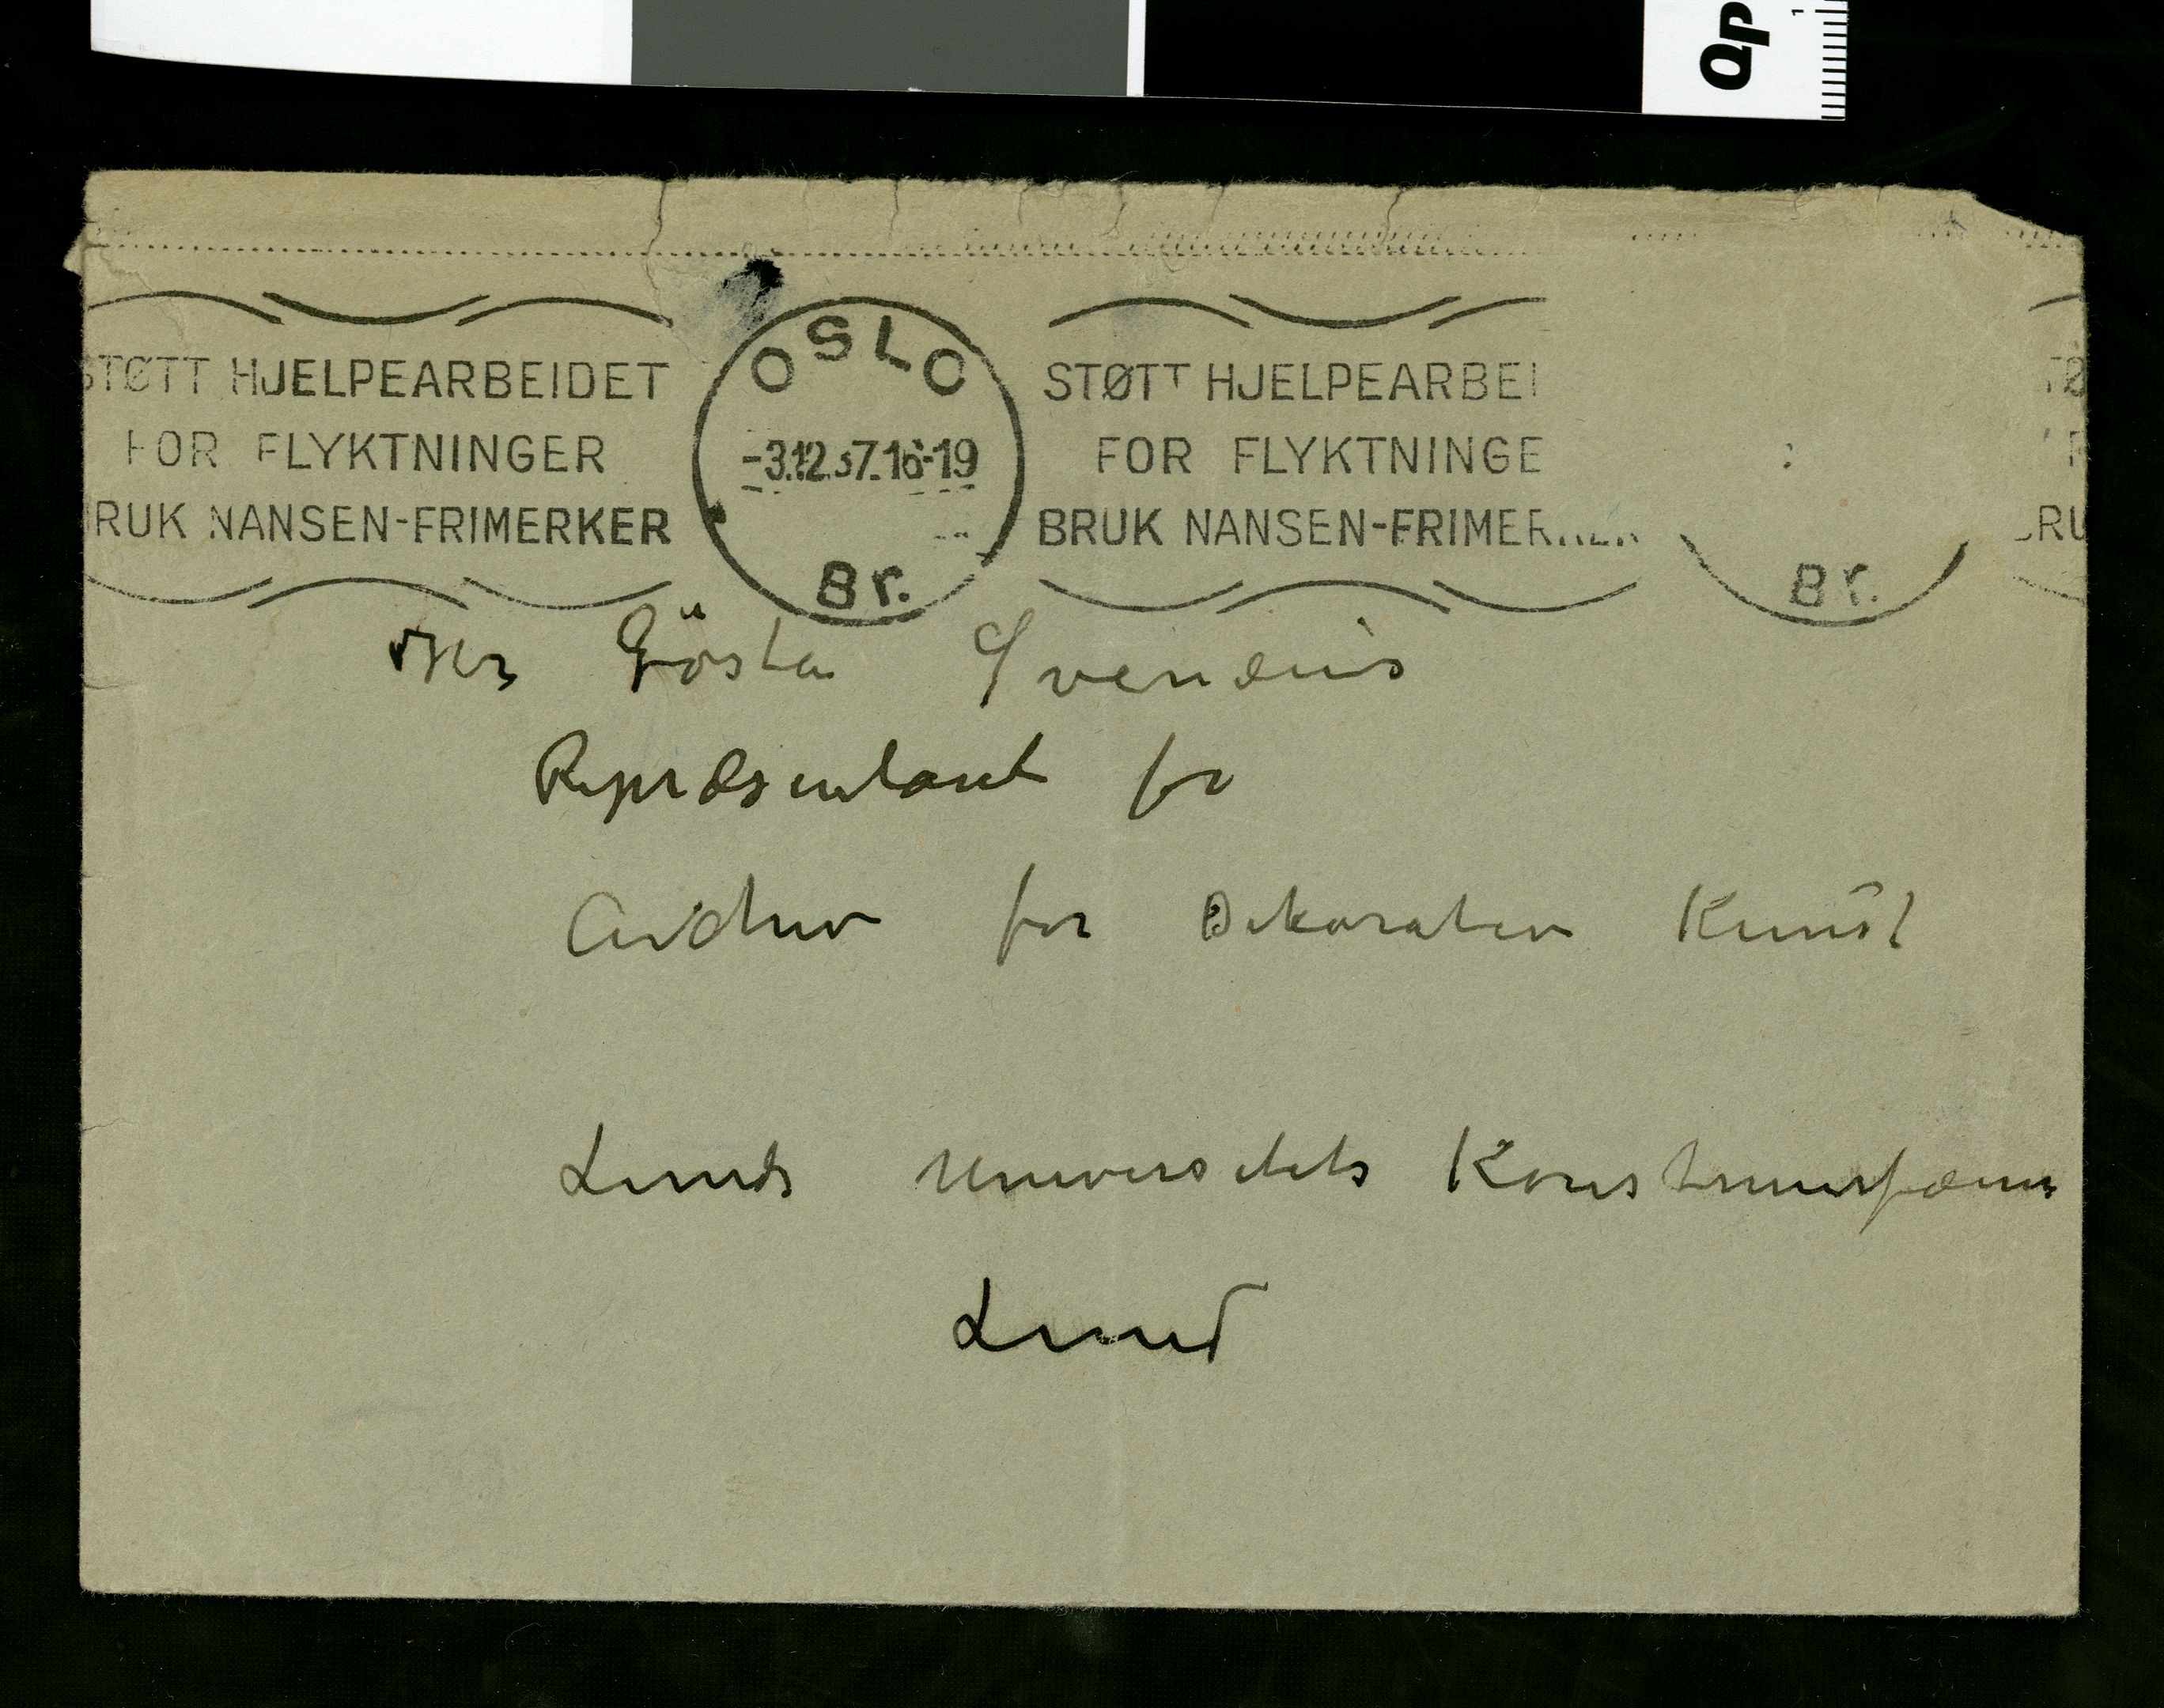 Qp
1
STØTT HJELPEARBEIDET
FOR FLYKTNINGER
RUK NANSEN-FRIMERKER
OSLO
-3.12.37.16-19
Br.
STØTT HJELPEARBEI
FOR FLYKTNINGE
BRUK NANSEN-FRIMER
Br.
TØ
F
RU
Herr Gösta Svenæus
Repræsentant for
Archiv for Dekorativ Kunst
Lunds Universitets Konst
Lund